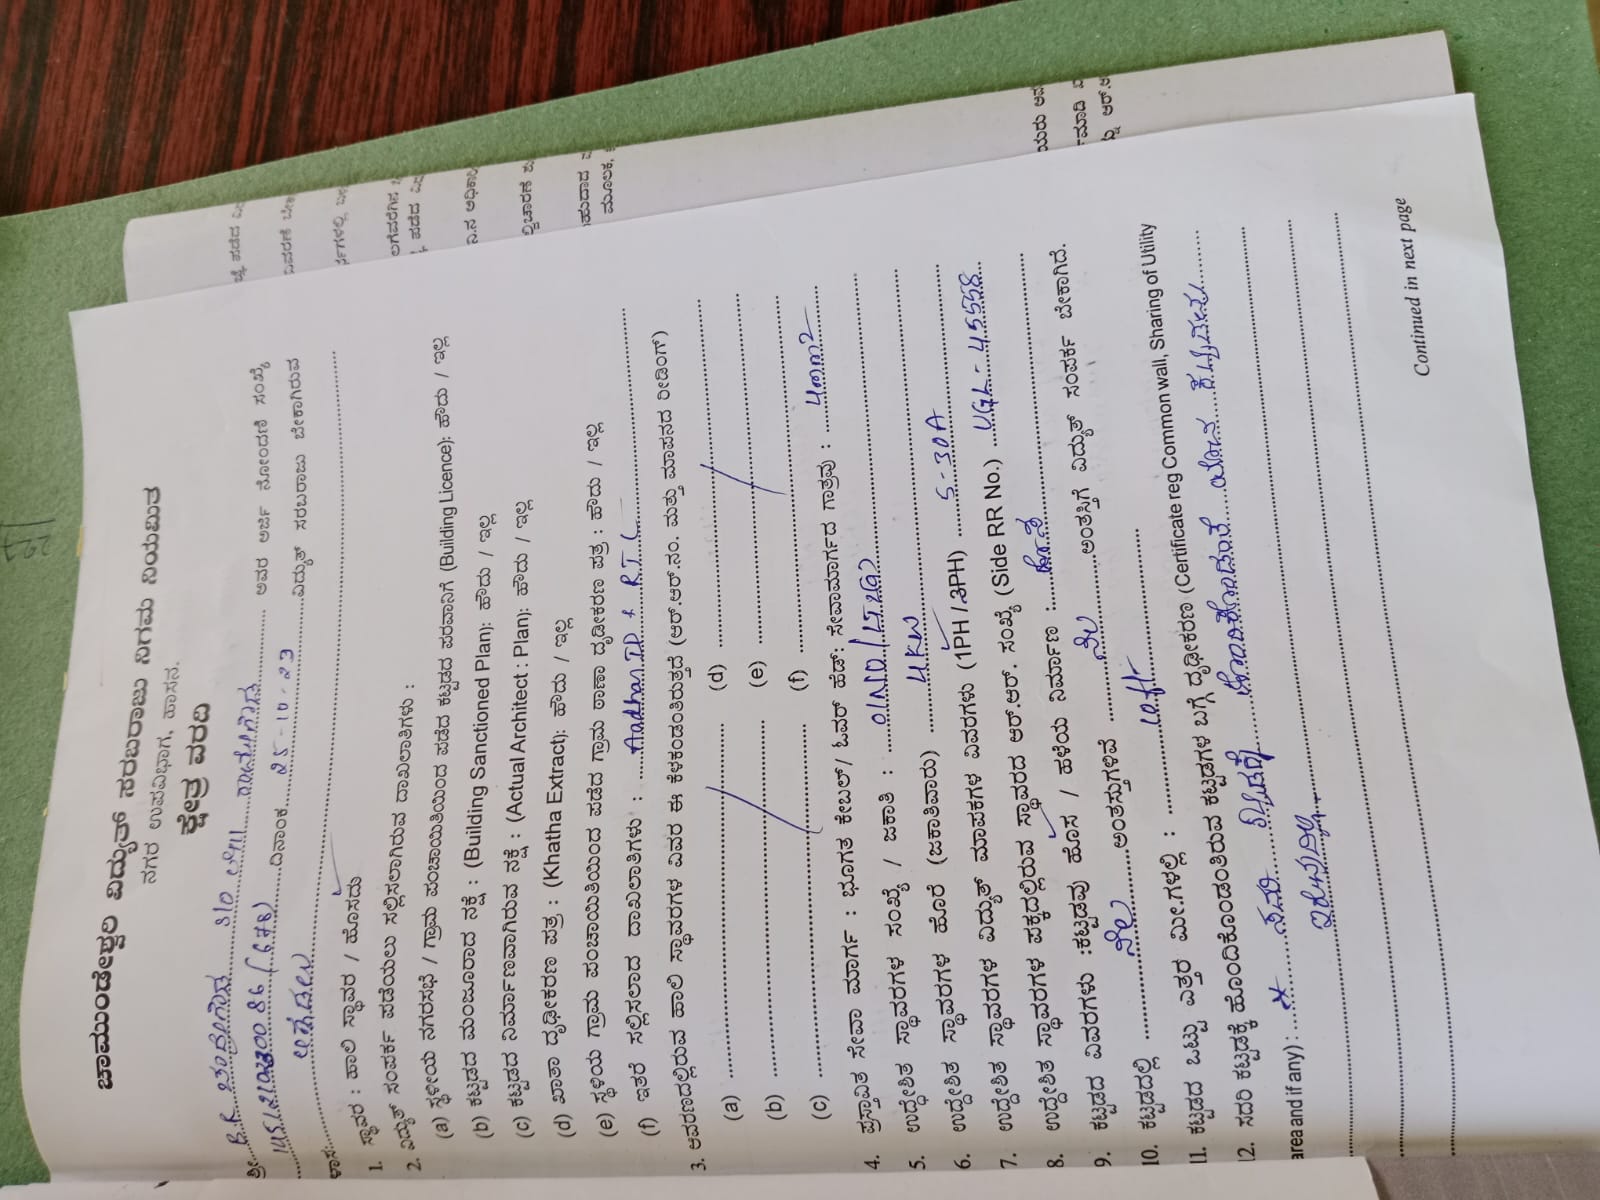 ಚಾಮುಂಡೇಶ್ವರಿ ವಿದ್ಯುತ್ ಸರಬರಾಜು ನಿಗಮ ನಿಯಮಿತ
ನಗರ ಉಪವಿಭಾಗ, ಹಾಸನ.
ಕ್ಷೇತ್ರ ವರದಿ
ಶ್ರೀ. B.R ಚಂದ್ರೇಗೌಡ S/o ಲೇ|| ರಾಮೇಗೌಡ ಅವರ ಅರ್ಜಿ ನೋಂದಣಿ ಸಂಖ್ಯೆ
(678) ದಿನಾಂಕ 25-10-23 ವಿದ್ಯುತ್ ಸರಬರಾಜು ಬೇಕಾಗಿರುವ
1. ಸ್ಥಾವರ : ಹಾಲಿ ಸ್ಥಾವರ / ಹೊಸದು
2. ವಿದ್ಯುತ್ ಸಂಪರ್ಕ ಪಡೆಯಲು ಸಲ್ಲಿಸಲಾಗಿರುವ ದಾಖಲಾತಿಗಳು :
(a) ಸ್ಥಳೀಯ ನಗರಸಭೆ / ಗ್ರಾಮ ಪಂಚಾಯಿತಿಯಿಂದ ಪಡೆದ ಕಟ್ಟಡದ ಪರವಾನಿಗೆ (Building Licence): ಹೌದು / ಇಲ್ಲ
(b) ಕಟ್ಟಡದ ಮಂಜೂರಾದ ನಕ್ಷೆ : (Building Sanctioned Plan): ಹೌದು / ಇಲ್ಲ
(c) ಕಟ್ಟಡದ ನಿರ್ಮಾಣವಾಗಿರುವ ನಕ್ಷೆ : (Actual Architect : Plan): ಹೌದು / ಇಲ್ಲ
(d) ಖಾತಾ ದೃಢೀಕರಣ ಪತ್ರ : (Khatha Extract): ಹೌದು / ಇಲ್ಲ
(e) ಸ್ಥಳಿಯ ಗ್ರಾಮ ಪಂಚಾಯಿತಿಯಿಂದ ಪಡೆದ ಗ್ರಾಮ ಠಾಣಾ ದೃಢೀಕರಣ ಪತ್ರ : ಹೌದು / ಇಲ್ಲ
(f) ಇತರೆ ಸಲ್ಲಿಸಲಾದ ದಾಖಲಾತಿಗಳು : Aadhar ID & RTC
3. ಆವರಣದಲ್ಲಿರುವ ಹಾಲಿ ಸ್ಥಾವರಗಳ ವಿವರ ಈ ಕೆಳಕಂಡಂತಿರುತ್ತದೆ (ಆರ್.ಆರ್.ನಂ. ಮತ್ತು ಮಾಪನದ ರೀಡಿಂಗ್)
(a) (d)
(b) (e)
(c) (f)
4. ಪ್ರಸ್ತಾವಿತ ಸೇವಾ ಮಾರ್ಗ : ಭೂಗತ ಕೇಬಲ್/ ಓವರ್ ಹೆಡ್: ಸೇವಾಮಾರ್ಗದ ಗಾತ್ರವು : 4mm2
5. ಉದ್ದೇಶಿತ ಸ್ಥಾವರಗಳ ಸಂಖ್ಯೆ / ಜಕಾತಿ : 01NO/
6. ಉದ್ದೇಶಿತ ಸ್ಥಾವರಗಳ ಹೊರೆ (ಜಕಾತಿವಾರು) 4KW
7. ಉದ್ದೇಶಿತ ಸ್ಥಾವರಗಳ ವಿದ್ಯುತ್ ಮಾಪಕಗಳ ವಿವರಗಳು (1PH / 3PH) 5-30A
8. ಉದ್ದೇಶಿತ ಸ್ಥಾವರಗಳ ಪಕ್ಕದಲ್ಲಿರುವ ಸ್ಥಾವರದ ಆರ್.ಆರ್. ಸಂಖ್ಯೆ (Side RR No.) UGL-45558
9. ಕಟ್ಟಡದ ವಿವರಗಳು :ಕಟ್ಟಡವು ಹೊಸ / ಹಳೆಯ ನಿರ್ಮಾಣ : ಹೊಸ
10. ಕಟ್ಟಡದಲ್ಲಿ ನೆಲ ಅಂತಸ್ತುಗಳಿವೆ ನೆಲ ಅಂತಸ್ತಿಗೆ ವಿದ್ಯುತ್ ಸಂಪರ್ಕ ಬೇಕಾಗಿದೆ.
11. ಕಟ್ಟಡದ ಒಟ್ಟು ಎತ್ತರ ಮೀ.ಗಳಲ್ಲಿ : 10 ft
12. ಸದರಿ ಕಟ್ಟಡಕ್ಕೆ ಹೊಂದಿಕೊಂಡಂತಿರುವ ಕಟ್ಟಡಗಳ ಬಗ್ಗೆ ದೃಢೀಕರಣ (Certificate reg Common wall, Sharing of Utility
area and if any) : * ಸದರಿ ಕಟ್ಟಡಕ್ಕೆ ಹೊಂದಿಕೊಂಡಂತೆ ಯಾವ ಕಟ್ಟಡವು
ಇರುವುದಿಲ್ಲ.
Continued in next page